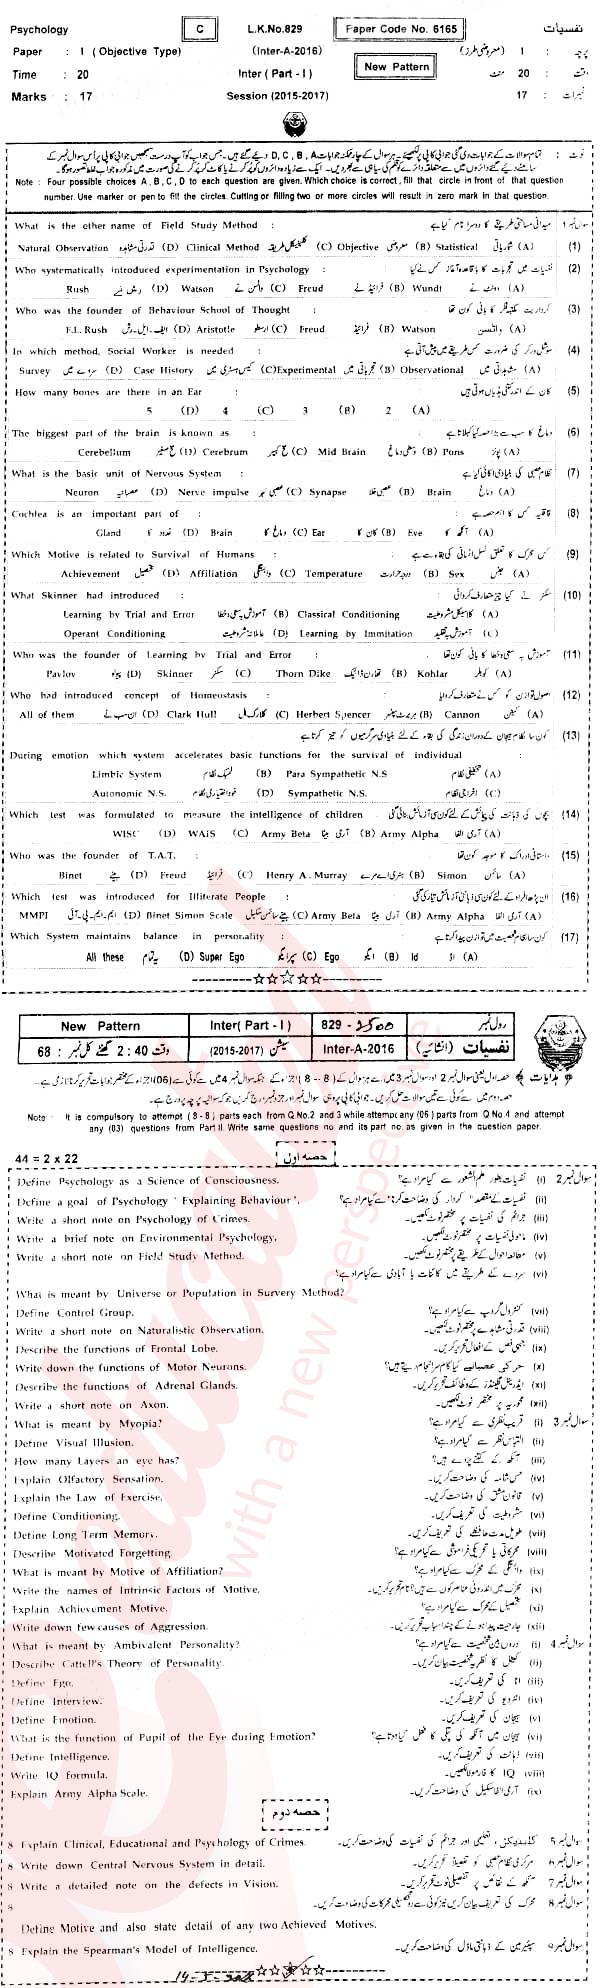 Psychology C L.K.No.829 Paper Code No. 6165 نفسیات
Paper : I (Objective Type) (Inter-A-2016) پرچہ : I (معروضی طرز)
Time : 20 Inter (Part - I) New Pattern وقت : 20 منٹ
Marks : 17 Session (2015-2017) نمبرات : 17
Note : Four possible choices A, B, C, D to each question are given. Which choice is correct, fill that circle in front of that question
number. Use marker or pen to fill the circles. Cutting or filling two or more circles will result in zero mark in that question.
What is the other name of Field Study Method : سوال نمبر 1
Natural Observation قدرتی مشاہدہ (D) Clinical Method (C) Objective معروضی (B) Statistical شماریاتی (A) (1)
Who systematically introduced experimentation in Psychology : (2)
Rush (D) Watson واٹسن (C) Freud فرائیڈ (B) Wundt (A)
Who was the founder of Behaviour School of Thought : (3)
F.L. Rush ایف۔ایل۔رش (D) Aristotle ارسطو (C) Freud فرائیڈ (B) Watson واٹسن (A)
In which method, Social Worker is needed : (4)
Survey سروے میں (D) Case History کیس ہسٹری میں (C) Experimental تجرباتی میں (B) Observational مشاہداتی میں (A)
How many bones are there in an Ear : کان کے اندر کتنی ہڈیاں ہوتی ہیں (5)
5 (D) 4 (C) 3 (B) 2 (A)
The biggest part of the brain is known as : دماغ کا سب سے بڑا حصہ کیا کہلاتا ہے (6)
Cerebellum (D) Cerebrum (C) Mid Brain وسطی دماغ (B) Pons پونز (A)
What is the basic unit of Nervous System : نظام عصبی کی بنیادی اکائی کیا ہے (7)
Neuron عصبانیہ (D) Nerve impulse (C) Synapse (B) Brain دماغ (A)
Cochlea is an important part of : (8)
Gland غدود کا (D) Brain دماغ کا (C) Ear کان کا (B) Eye آنکھ کا (A)
Which Motive is related to Survival of Humans : (9)
Achievement تحصیل (D) Affiliation وابستگی (C) Temperature درجہ حرارت (B) Sex جنس (A)
What Skinner had introduced : سکنر نے کیا چیز متعارف کروائی (10)
Learning by Trial and Error آموزش بہ سعی و خطا (B) Classical Conditioning کلاسیکل مشروطیت (A)
Operant Conditioning عاملانہ مشروطیت (D) Learning by Immitation آموزش بہ تقلید (C)
Who was the founder of Learning by Trial and Error : آموزش بہ سعی و خطا کا بانی کون تھا (11)
Pavlov (D) Skinner سکنر (C) Thorn Dike تھارن ڈائیک (B) Kohlar کوہلر (A)
Who had introduced concept of Homeostasis : اصول توازن کو کس نے متعارف کروایا (12)
All of them ان سب نے (D) Clark Hull کلارک ہل (C) Herbert Spencer ہربرٹ سپنسر (B) Cannon کینن (A)
(13)
During emotion which system accelerates basic functions for the survival of individual :
Limbic System لمبک نظام (B) Para Sympathetic N.S (A)
Autonomic N.S. خود اختیاری نظام (D) Sympathetic N.S. (C)
Which test was formulated to measure the intelligence of children : (14)
WISC (D) WAIS (C) Army Beta آرمی بیٹا (B) Army Alpha آرمی الفا (A)
Who was the founder of T.A.T. : (15)
Binet بینے (D) Freud فرائیڈ (C) Henry A. Murray ہنری اے مرے (B) Simon سائمن (A)
Which test was introduced for Illiterate People : (16)
MMPI ایم۔ایم۔پی۔آئی (D) Binet Simon Scale بینے سائمن سکیل (C) Army Beta آرمی بیٹا (B) Army Alpha آرمی الفا (A)
Which System maintains balance in personality : کون سا نظام شخصیت میں توازن پیدا کرتا ہے (17)
All these یہ تمام (D) Super Ego سپر ایگو (C) Ego ایگو (B) Id اڈ (A)
New Pattern Inter( Part - I ) 829 - رول نمبر
وقت 2 : 40 گھنٹے کل نمبر : 68 سیشن (2015-2017) Inter-A-2016 نفسیات (انشائیہ)
Note : It is compulsory to attempt ( 8 - 8 ) parts each from Q.No.2 and 3 while attempt any (06) parts from Q.No.4 and attempt
any (03) questions from Part II. Write same questions no and its part no. as given in the question paper.
44 = 2 x 22 حصہ اول
Define Psychology as a Science of Consciousness. نفسیات بطور علم الشعور سے کیا مراد ہے؟ (i) سوال نمبر 2
Define a goal of Psychology ' Explaining Behaviour'. نفسیات کے مقصد "کردار کی وضاحت کرنا" سے کیا مراد ہے؟ (ii)
Write a short note on Psychology of Crimes. جرائم کی نفسیات پر مختصر نوٹ لکھیں۔ (iii)
Write a brief note on Environmental Psychology. ماحولی نفسیات پر مختصر نوٹ لکھیں۔ (iv)
Write a short note on Field Study Method. مطالعہ احوال کے طریقے پر مختصر نوٹ لکھیں۔ (v)
سروے کے طریقے میں کائنات یا آبادی سے کیا مراد ہے؟ (vi)
What is meant by Universe or Population in Survery Method?
Define Control Group. کنٹرول گروپ سے کیا مراد ہے؟ (vii)
Write a short note on Naturalistic Observation. قدرتی مشاہدے پر مختصر نوٹ لکھیں۔ (viii)
Describe the functions of Frontal Lobe. جبہی لمبی کے افعال تحریر کریں۔ (ix)
Write down the functions of Motor Neurons. حرکی عصبانیے کیا کام سرانجام دیتے ہیں؟ (x)
Describe the functions of Adrenal Glands. ایڈرینل گلینڈز کے وظائف تحریر کریں۔ (xi)
Write a short note on Axon. محوریہ پر مختصر نوٹ لکھیں۔ (xii)
What is meant by Myopia? قریب نظری سے کیا مراد ہے؟ (i) سوال نمبر 3
Define Visual Illusion. التباس نظر سے کیا مراد ہے؟ (ii)
How many Layers an eye has? آنکھ کے کتنے پردے ہیں؟ (iii)
Explain Olfactory Sensation. حس شامہ کی وضاحت کریں۔ (iv)
Explain the Law of Exercise. قانون مشق کی وضاحت کریں۔ (v)
Define Conditioning. مشروطیت کی تعریف کریں۔ (vi)
Define Long Term Memory. طویل مدت حافظے کی تعریف کریں۔ (vii)
Describe Motivated Forgetting. محرکاتی یا تحریکی فراموشی سے کیا مراد ہے؟ (viii)
What is meant by Motive of Affiliation? وابستگی کے محرک سے کیا مراد ہے؟ (ix)
Write the names of Intrinsic Factors of Motive. محرک میں اندرونی عناصر کون سے ہیں؟ نام تحریر کریں۔ (x)
Explain Achievement Motive. تحصیل کے محرک سے کیا مراد ہے؟ (xi)
Write down few causes of Aggression. جارحیت پیدا ہونے کے چند اسباب تحریر کریں۔ (xii)
What is meant by Ambivalent Personality? دروں بین شخصیت سے کیا مراد ہے؟ (i) سوال نمبر 4
Describe Cattell's Theory of Personality. کیٹل کا نظریہ شخصیت بیان کریں۔ (ii)
Define Ego. انا کی تعریف کریں۔ (iii)
Define Interview. انٹرویو کی تعریف کریں۔ (iv)
Define Emotion. ہیجان کی تعریف کریں۔ (v)
What is the function of Pupil of the Eye during Emotion? ہیجان میں آنکھ کی پتلی کا فعل کیا ہوتا ہے؟ (vi)
Define Intelligence. ذہانت کی تعریف کریں۔ (vii)
Write IQ formula. IQ کا فارمولا لکھیں۔ (viii)
Explain Army Alpha Scale. آرمی الفا سکیل کی وضاحت کریں۔ (ix)
حصہ دوم
8 Explain Clinical, Educational and Psychology of Crimes. کلینیکل، تعلیمی اور جرائم کی نفسیات کی وضاحت کریں۔ سوال نمبر 5
8 Write down Central Nervous System in detail. مرکزی نظام عصبی کو تفصیلاً تحریر کریں۔ سوال نمبر 6
8 Write a detailed note on the defects in Vision. آنکھ کے نقائص پر تفصیلی نوٹ تحریر کریں۔ سوال نمبر 7
8 محرک کی تعریف بیان کریں نیز کوئی سے دو تحصیلی محرکات کی وضاحت کریں۔ سوال نمبر 8
Define Motive and also state detail of any two Achieved Motives.
8 Explain the Spearman's Model of Intelligence. سپیئرمین کے ذہانتی ماڈل کی وضاحت کریں۔ سوال نمبر 9
with a new perspective